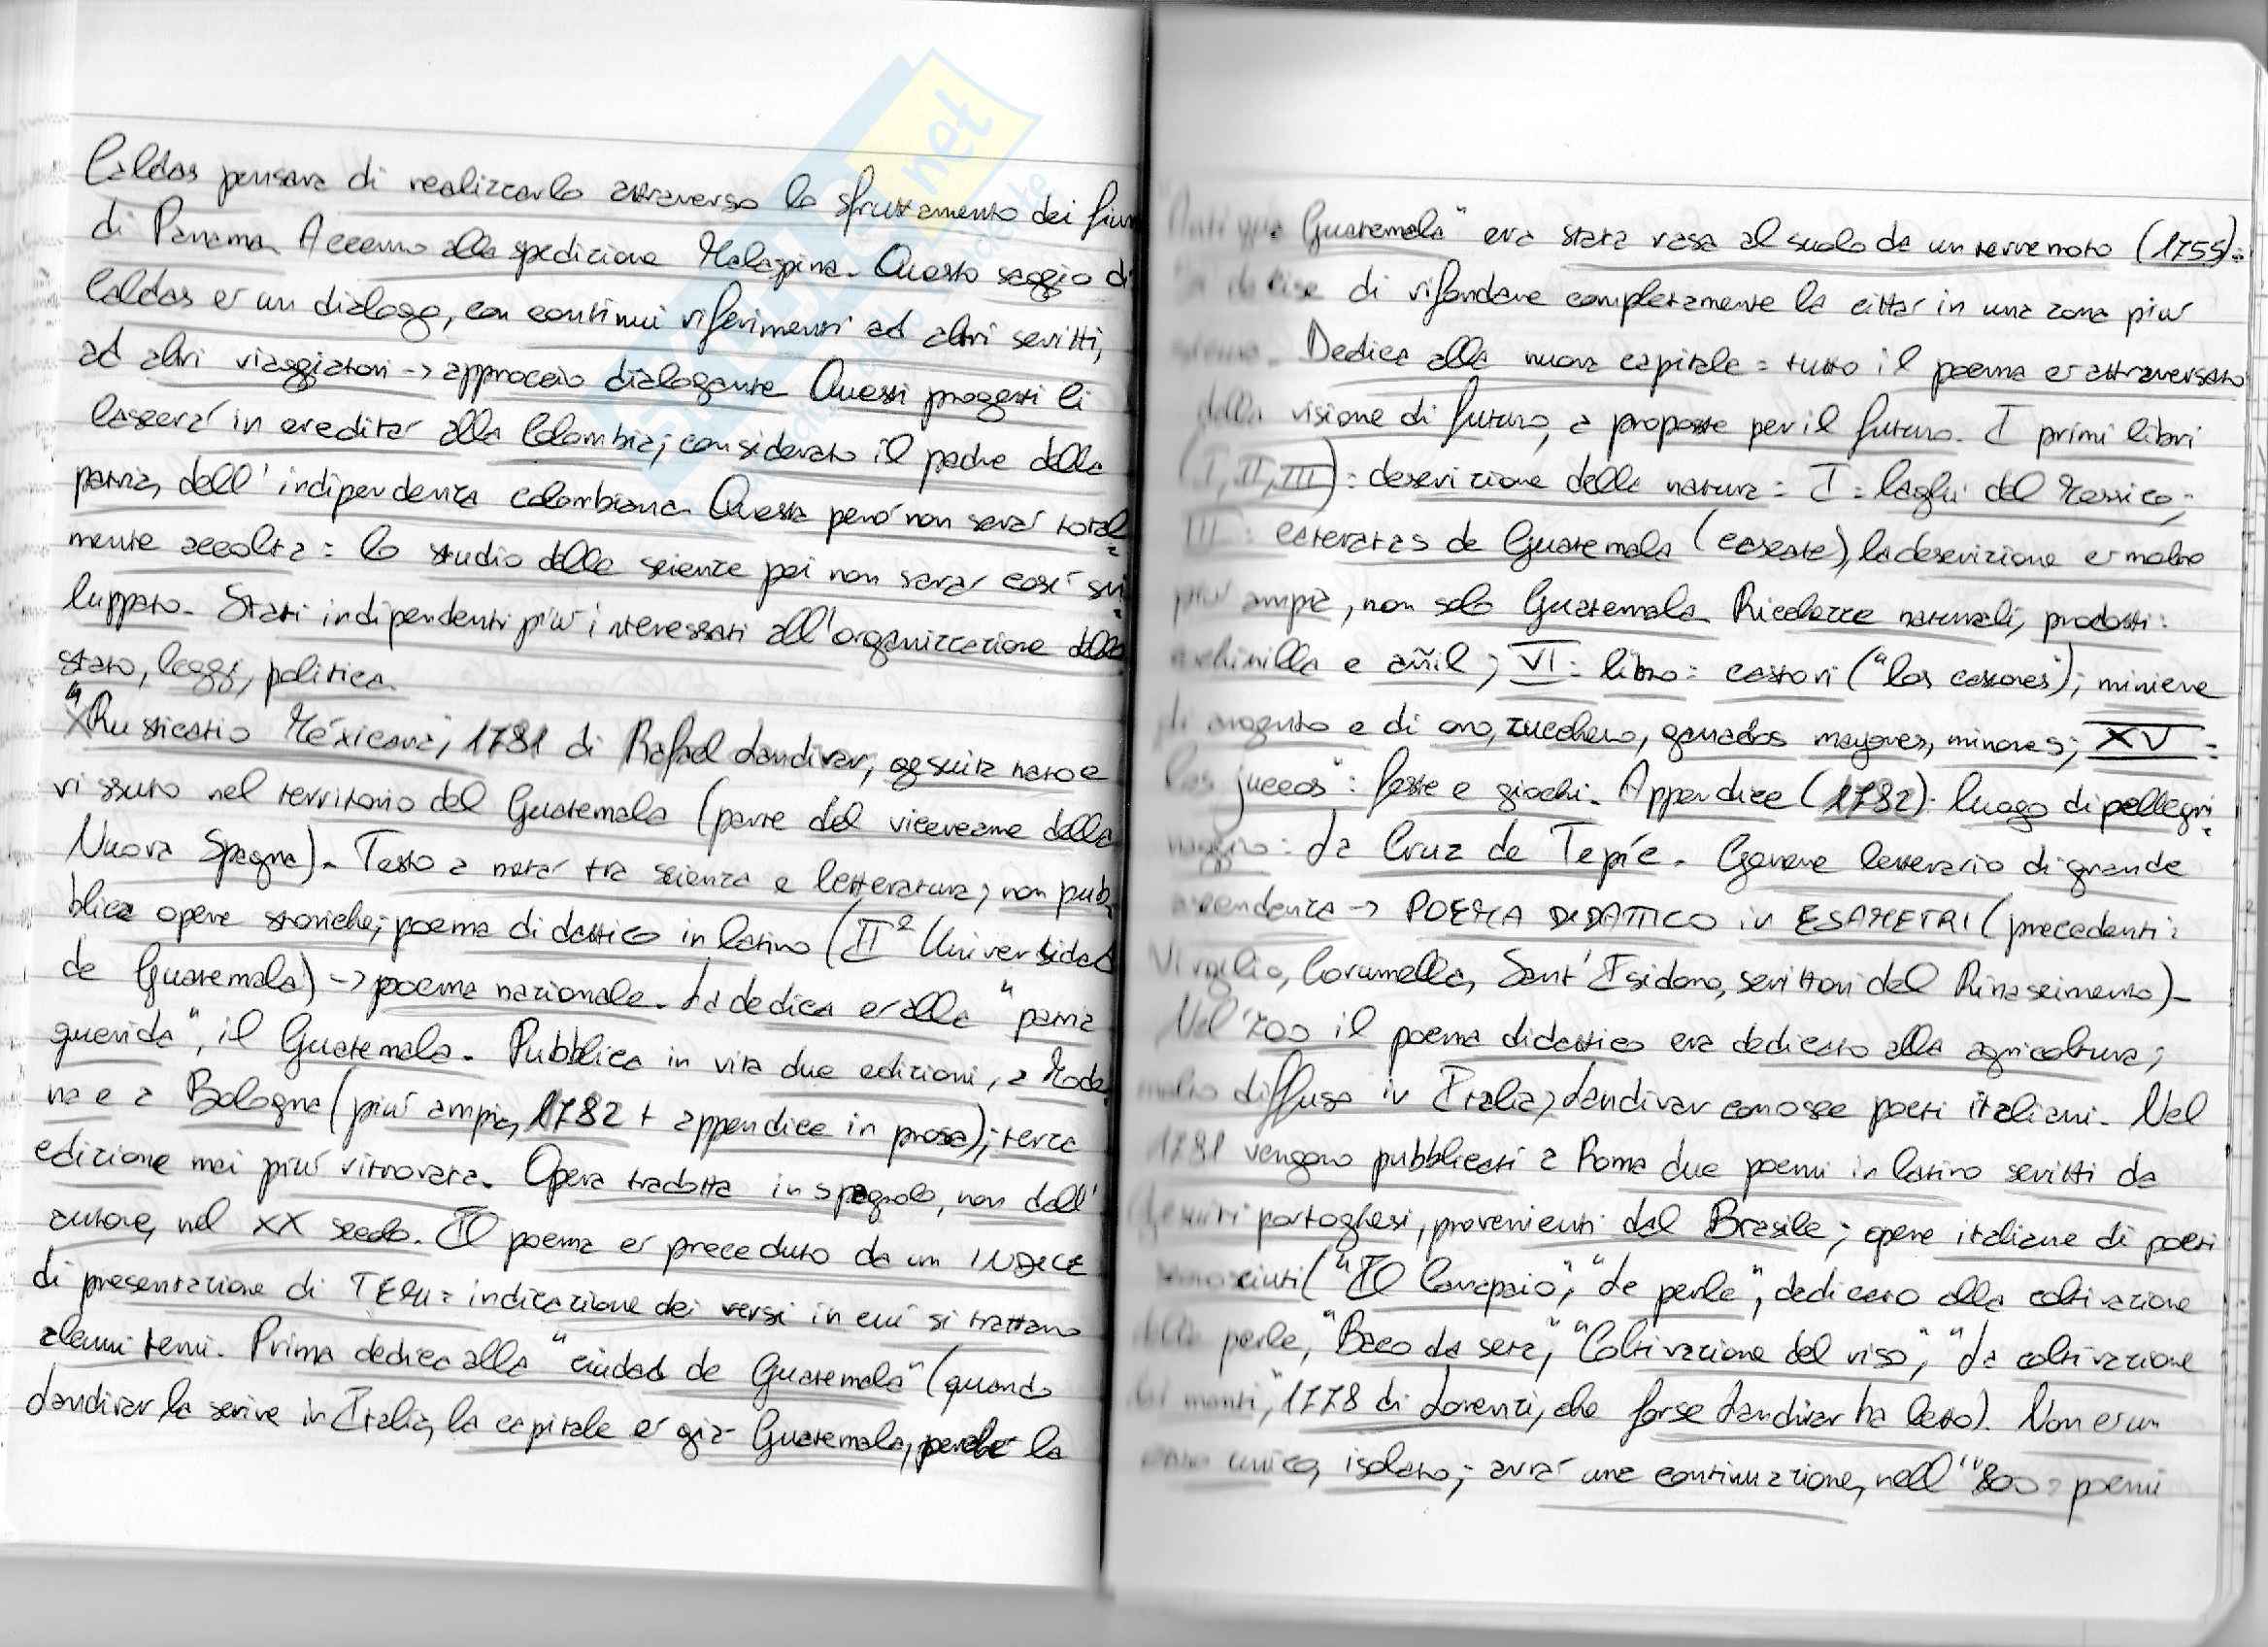 Caldas pensava di realizzarlo attraverso lo sfruttamento dei fiumi
di Panama. Accenno alla spedizione Malaspina. Questo saggio di
Caldas e' un dialogo, con continui riferimenti ad altri scritti,
ad altri viaggiatori -> approccio dialogante. Questi progetti li
lascerà in eredità alla Colombia; considerato il padre della
patria, dell'indipendenza colombiana. Questa però non sarà total
mente accolta: lo studio delle scienze poi non sarà così svi
luppato. Stati indipendenti più interessati all'organizzazione dello
stato, leggi, politica.
"Rusticatio Méxicana", 1781 di Rafael Landivar, gesuita nato e
vissuto nel territorio del Guatemala (parte del vicereame della
Nuova Spagna). Testo a metà tra scienza e letteratura; non pub
blica opere storiche; poema didattico in latino (II^a Universidad
de Guatemala) -> poema nazionale. La dedica e' alla "patria
querida", il Guatemala. Pubblica in vita due edizioni, a Mode
na e a Bologna (più ampia, 1782 + appendice in prosa); terza
edizione mai più ritrovata. Opera tradotta in spagnolo, non dall'
autore, nel XX secolo. Il poema e' preceduto da un INDICE
di presentazione di TEMI: indicazione dei versi in cui si trattano
alcuni temi. Prima dedica alla "ciudad de Guatemala" (quando
Landivar la scrive in Italia, la capitale e' già Guatemala, perché la
Antigua Guatemala" era stata rasa al suolo da un terremoto (1755):
si decise di rifondare completamente la città in una zona più
Dedica alla nuova capitale: tutto il poema e' attraversato
dalla visione di futuro, a proposte per il futuro. I primi libri
(I, II, III): descrizione della natura: I: laghi del Messico;
III: cataratas de Guatemala (cascate), la descrizione e' molto
più ampia, non solo Guatemala. Ricchezze naturali, prodotti:
cochinilla e añil; VI: libro: castori ("los castores"); miniere
di argento e di oro, zucchero, ganados mayores, minores; XV:
los juegos": feste e giochi. Appendice (1782): luogo di pellegri
naggio: La Cruz de Tepíc. Genere letterario di grande
ascendenza -> POEMA DIDATTICO in ESAMETRI (precedenti:
Virgilio, Corumella, Sant'Isidoro, scrittori del Rinascimento).
Nel '700 il poema didattico era dedicato alla agricoltura;
molto diffuso in Italia, Landivar conosce poeti italiani. Nel
1781 vengono pubblicati a Roma due poemi in latino scritti da
gesuiti portoghesi, provenienti dal Brasile; opere italiane di poeti
conosciuti ("Il Canapaio", "Le perle", dedicato alla coltivazione
delle perle, "Baco da seta", "Coltivazione del riso", "La coltivazione
dei monti", 1778 di Lorenzi, che forse Landivar ha letto). Non e' un
caso unico, isolato; avrà una continuazione, nell'"800: poemi